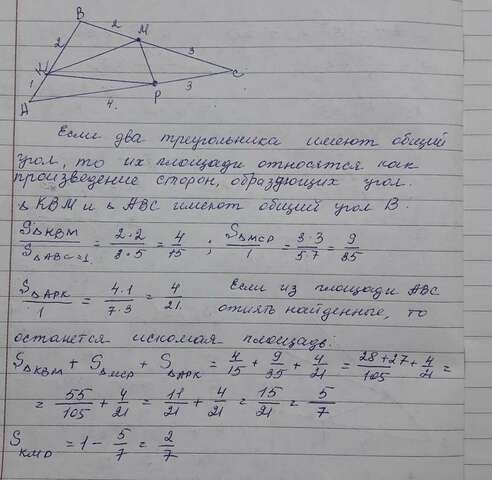 B
2
M
2
3
K
C
1
P
3
A
4.
Если два треугольника имеют общий
угол, то их площади относятся как
произведение сторон, образующих угол.
△ KBM и △ ABC имеют общий угол B.
S△KBM / S△ABC=1 = 2·2 / 3·5 = 4/15 ; S△MCP / 1 = 3·3 / 5·7 = 9/35
S△APK / 1 = 4·1 / 7·3 = 4/21 Если из площади ABC
отнять найденные, то
останется искомая площадь:
S△KBM + S△MCP + S△APK = 4/15 + 9/35 + 4/21 = 28+27/105 + 4/21 =
= 55/105 + 4/21 = 11/21 + 4/21 = 15/21 = 5/7
S KMP = 1 - 5/7 = 2/7